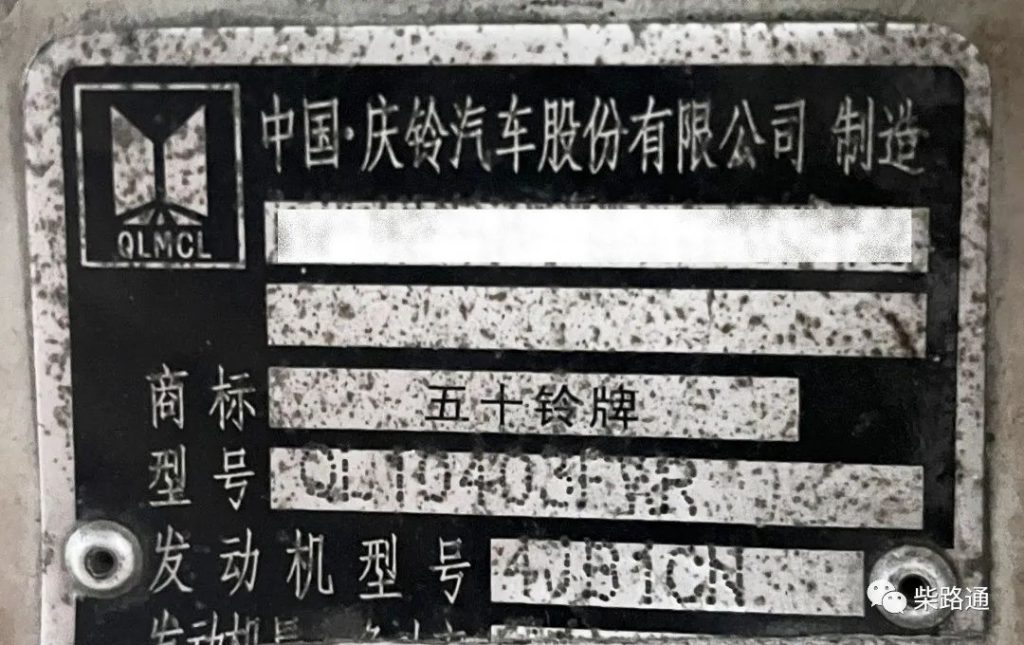 中国·庆铃汽车股份有限公司 制造
QLMCL
商标 五十铃牌
型号 QL10402FHR
发动机型号 4JB1CN
柴路通